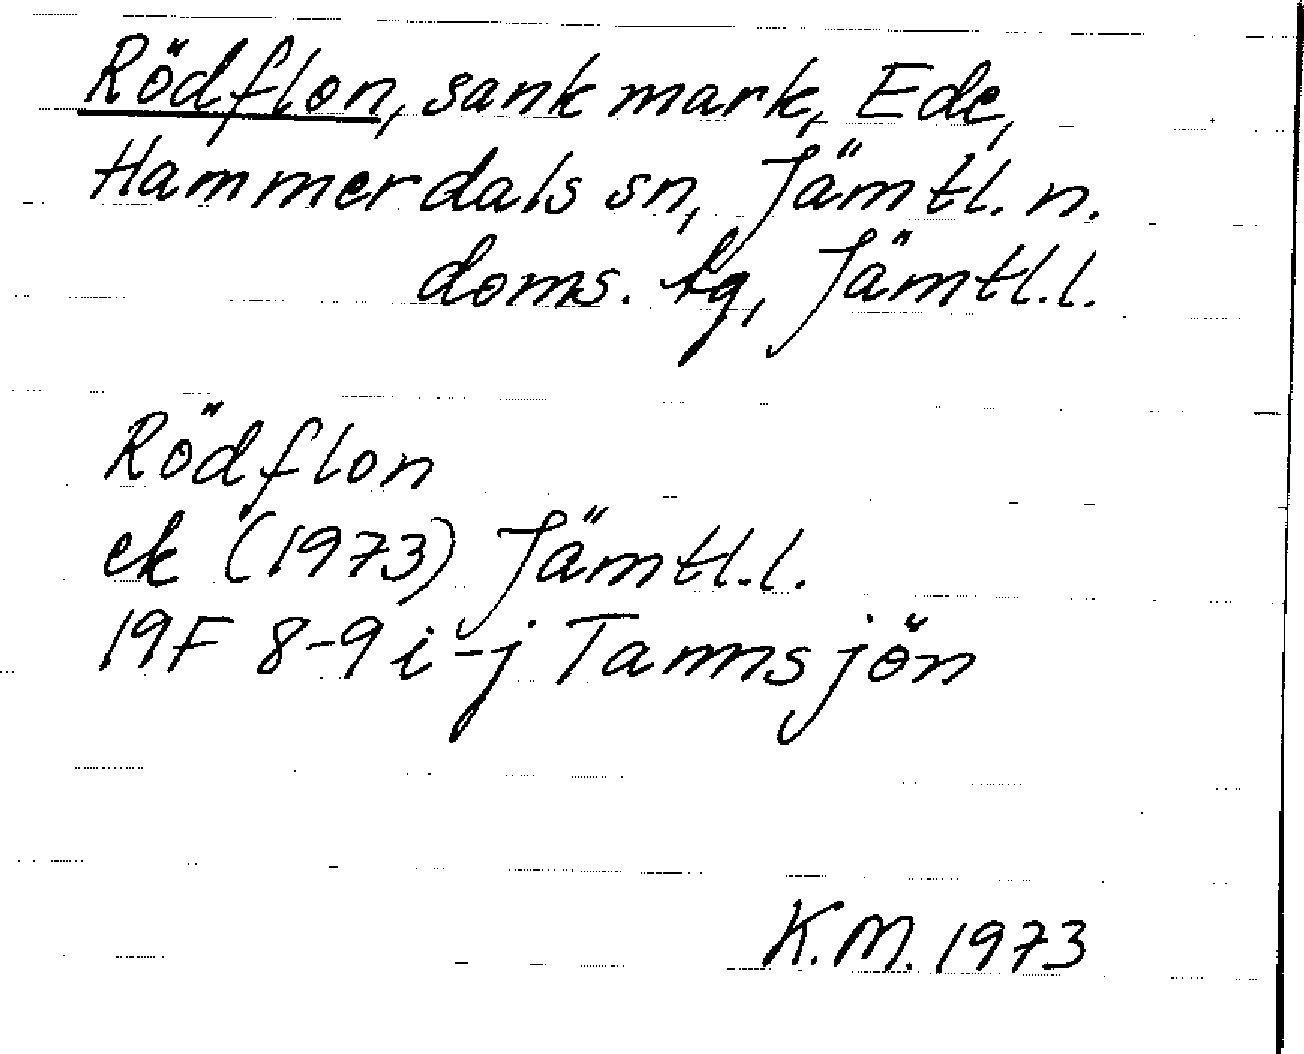 Rödflon, sank mark, Ede,
Hammerdals sn, Jämtl. n.
doms. tg, Jämtl.l.
Rödflon
ek (1973) Jämtl.l.
19F 8-9 i-j Tannsjön
K.M. 1973